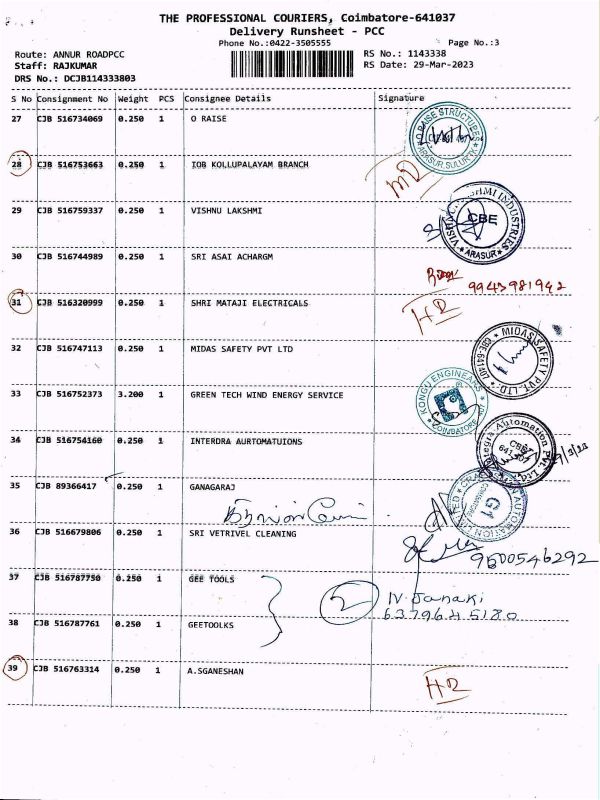 THE PROFESSIONAL COURIERS, Coimbatore-641037
Delivery Runsheet - PCC
Phone No.:0422-3505555 Page No.:3
Route: ANNUR ROADPCC RS No.: 1143338
Staff: RAJKUMAR RS Date: 29-Mar-2023
DRS No.: DCJB114333803
S No Consignment No Weight PCS Consignee Details Signature
27 CJB 516734069 0.250 1 O RAISE
28 CJB 516753663 0.250 1 IOB KOLLUPALAYAM BRANCH
29 CJB 516759337 0.250 1 VISHNU LAKSHMI
CBE
ARASUR
30 CJB 516744989 0.250 1 SRI ASAI ACHARGM
9943981942
31 CJB 516320999 0.250 1 SHRI MATAJI ELECTRICALS
32 CJB 516747113 0.250 1 MIDAS SAFETY PVT LTD
MIDAS SAFETY PVT. LTD.
33 CJB 516752373 3.200 1 GREEN TECH WIND ENERGY SERVICE
KONGU ENGINEARS
34 CJB 516754160 0.250 1 INTERDRA AURTOMATUIONS
35 CJB 89366417 0.250 1 GANAGARAJ
36 CJB 516679806 0.250 1 SRI VETRIVEL CLEANING
9600546292
37 CJB 516787750 0.250 1 GEE TOOLS
2 N. Janaki
6379645180
38 CJB 516787761 0.250 1 GEETOOLKS
39 CJB 516763314 0.250 1 A.SGANESHAN